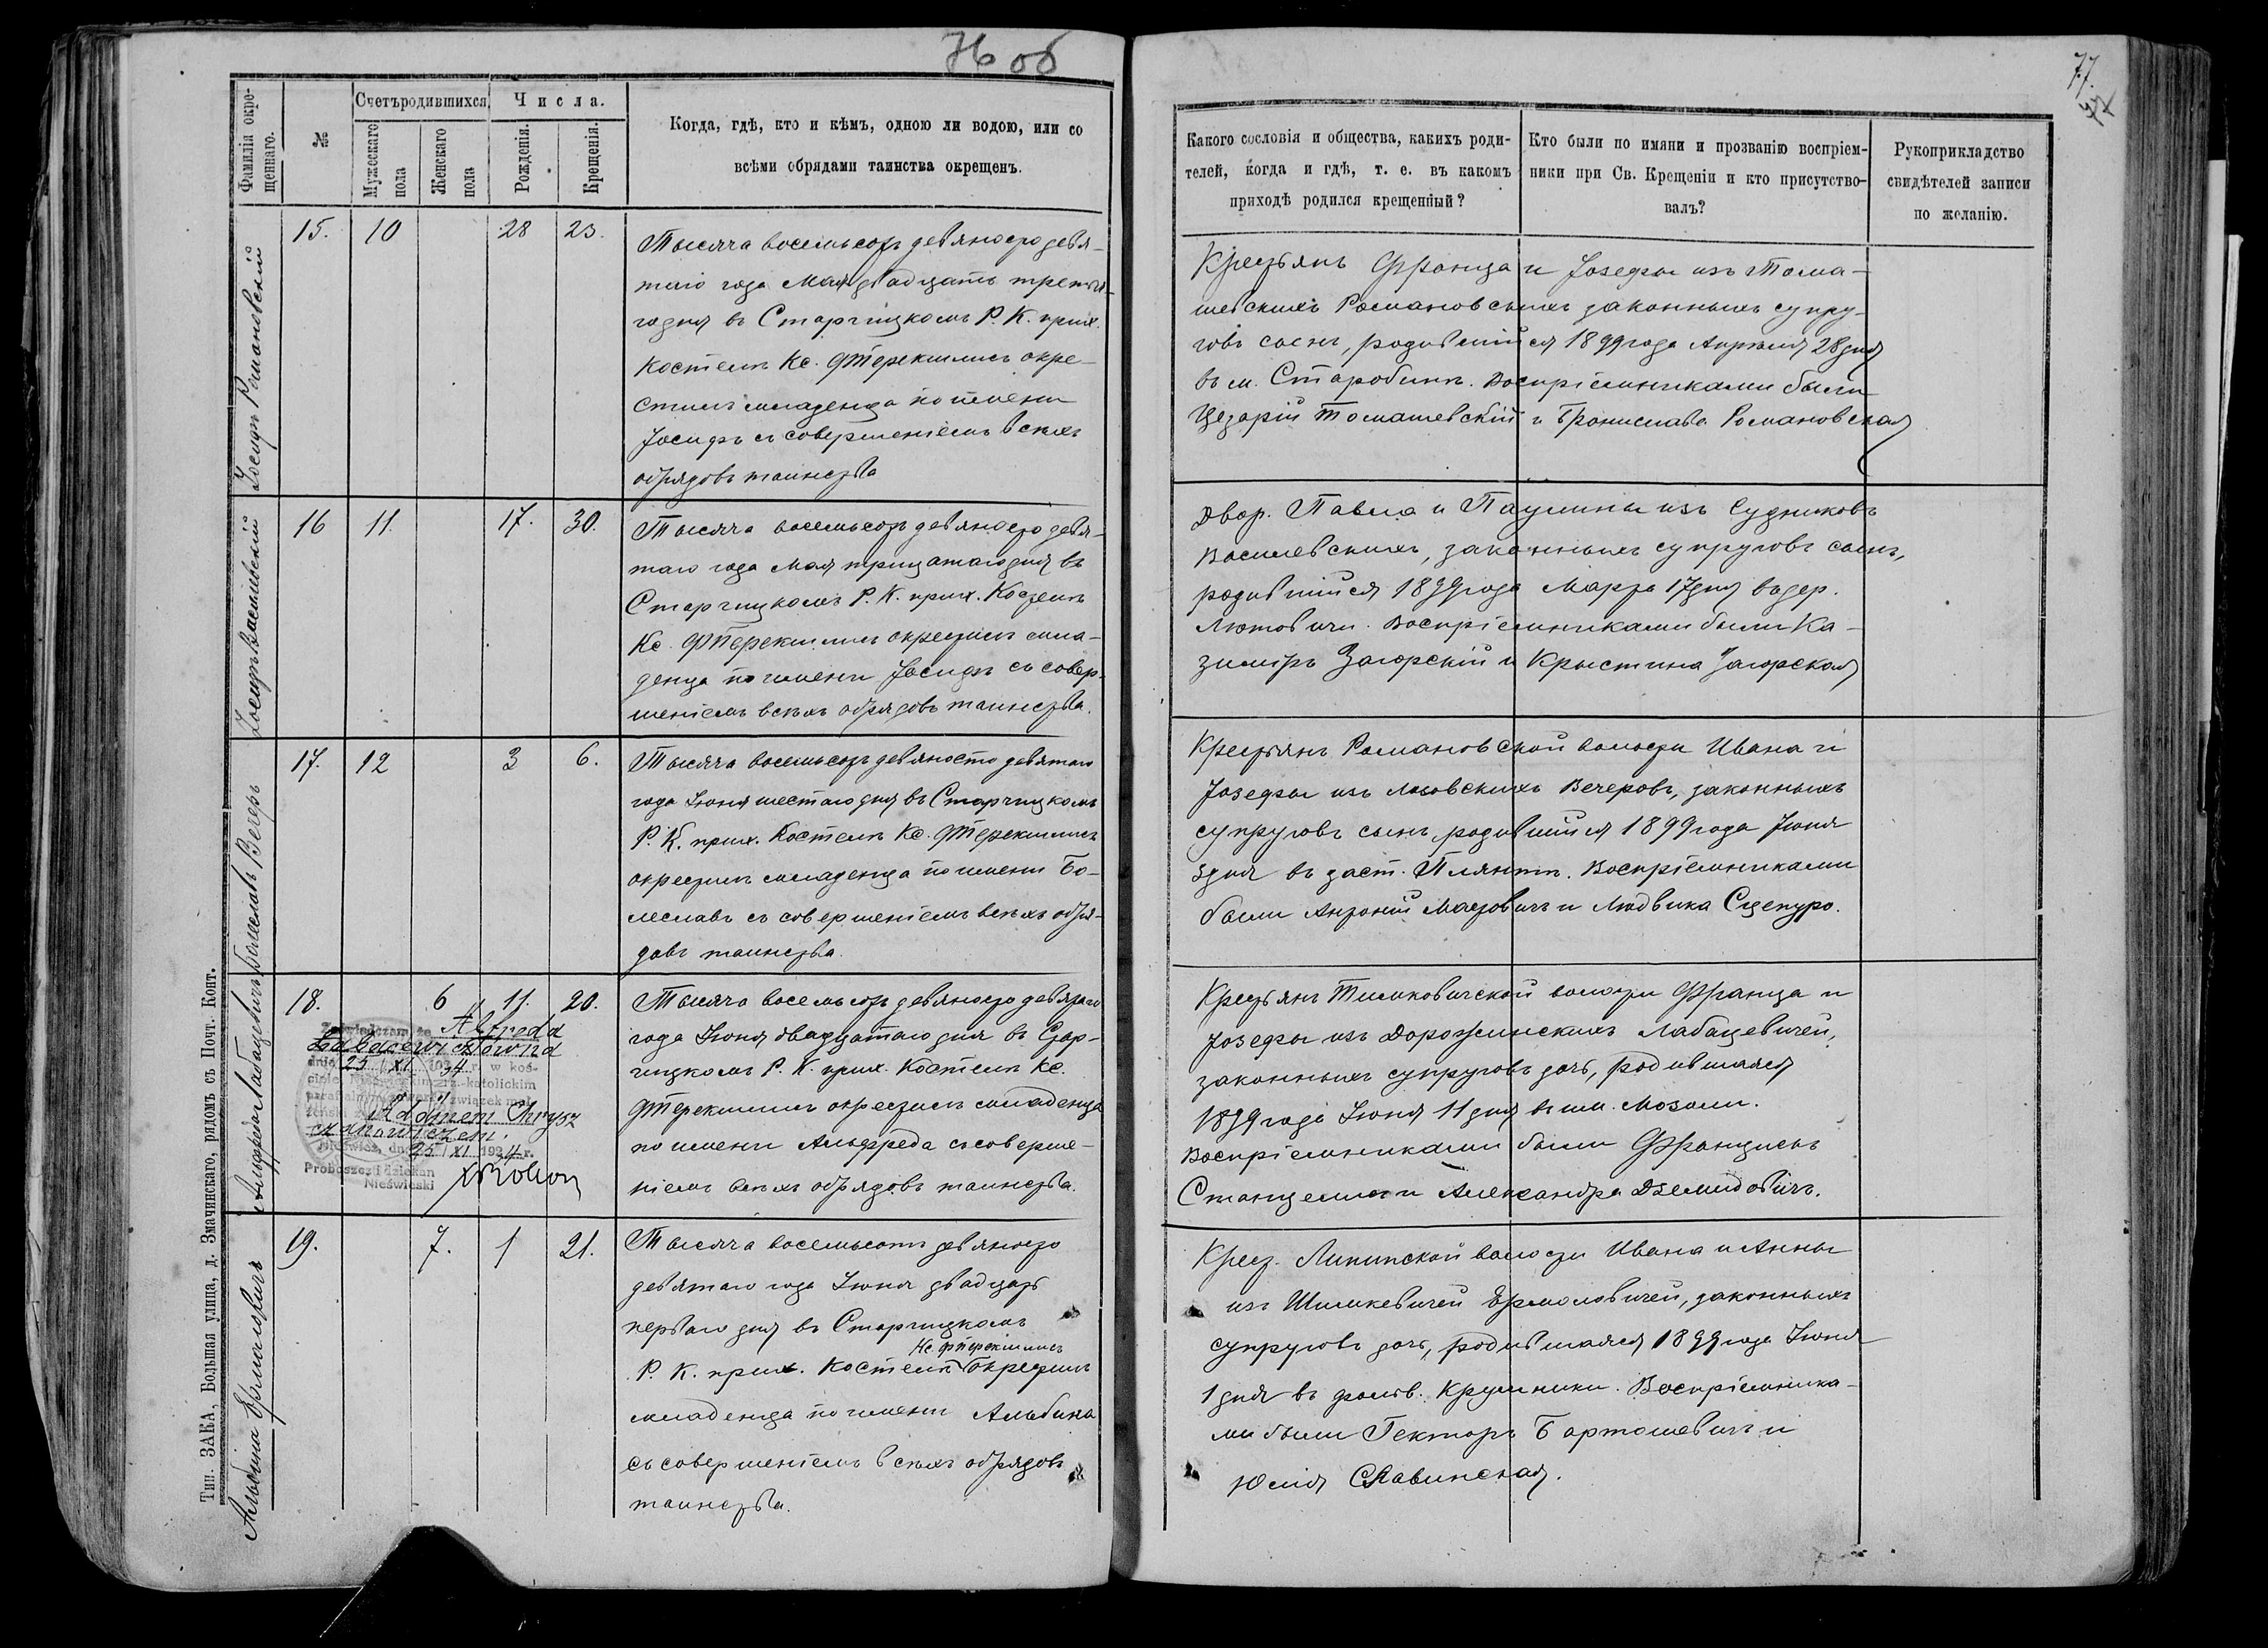 76 об
77.
Фамилія окре-
щеннаго.
№
Счетъ родившихся.
Мужескаго
пола
Женскаго
пола
Числа.
Рожденія.
Крещенія.
Когда, гдѣ, кто и кѣмъ, одною ли водою, или со
всѣми обрядами таинства окрещенъ.
Какого сословія и общества, какихъ роди-
телей, когда и гдѣ, т. е. въ какомъ
приходѣ родился крещенный?
Кто были по имяни и прозванію воспріем-
ники при Св. Крещеніи и кто присутство-
валъ?
Рукоприкладство
свидѣтелей записи
по желанію.
Іосифъ Романовскій
15. 10 28 23.
Тысяча восемьсотъ девяносто девя-
таго года Мая двадцать третья-
го дня въ Старчицкомъ Р. К. прих.
Костелѣ Кс. Ф Терекшлисъ окре-
стилъ младенца по имени
Іосифъ съ совершеніемъ всѣхъ
обрядовъ таинства
Крестьянъ Франца и Іозефы изъ Тома-
шевскихъ Романовскихъ законныхъ супру-
говъ сынъ, родившійся 1899 года Апрѣля 28 дня
въ м. Старобинѣ. Воспріемниками были
Цезарій Томашевскій и Бронислава Романовская
Іосифъ Василевскій
16 11. 17. 30.
Тысяча восемьсотъ девяносто девя-
таго года Мая тридцатаго дня въ
Старчицкомъ Р. К. прих. Костелѣ
Кс. Ф Терекшлисъ окрестилъ мла-
денца по имени Іосифъ съ совер-
шеніемъ всѣхъ обрядовъ таинства.
Двор. Павла и Паулины изъ Судниковъ
Василевскихъ, законныхъ супруговъ сынъ,
родившійся 1899 года Марта 17 дня въ дер.
Лютовичи. Воспріемниками были Ка-
зиміръ Загорскій и Крыстина Загорская
Болеславъ Вечеръ
17. 12 3 6.
Тысяча восемьсотъ девяносто девятаго
года Іюня шестаго дня въ Старчицкомъ
Р. К. прих. Костелѣ Кс. Ф Терекшлисъ
окрестилъ младенца по имени Бо-
леславъ съ совершеніемъ всѣхъ обря-
довъ таинства.
Крестьянъ Романовской волости Ивана и
Іозефы изъ Лисовскихъ Вечеровъ, законныхъ
супруговъ сынъ, родившійся 1899 года Іюня
3 дня въ заст. Плянтъ. Воспріемниками
были Антоній Мацовичъ и Людвика Сцепуро.
Альфреда Лабацевичъ
18. 6 11. 20.
Zaświadczam, że Alfreda
Łabacewiczówna
dnia 25/XI 1934 r. w koś-
ciele Nieświeskim rz.-katolickim
parafialnym zawarła związek mał-
żeński z Adamem Chrysz
czanowiczem.
Nieśwież, dn. 25/XI 1934 r.
Proboszcz i dziekan
Nieświeski
Тысяча восемьсотъ девяносто девятаго
года Іюня двадцатаго дня въ Стар-
чицкомъ Р. К. прих. Костелѣ Кс.
Ф Терекшлисъ окрестилъ младенца
по имени Альфреда съ соверше-
ніемъ всѣхъ обрядовъ таинства.
Крестьянъ Тимковичской волости Франца и
Іозефы изъ Дорожинскихъ Лабацевичей,
законныхъ супруговъ дочь, родившаяся
1899 года Іюня 11 дня въ им. Мозоли.
Воспріемниками были Францискъ
Станцелисъ и Александра Дземидовичъ.
Альбина Ермоловичъ
19. 7. 1 21.
Тысяча восемьсотъ девяносто
девятаго года Іюня двадцать
перваго дня въ Старчицкомъ
Кс. Ф Терекшлисъ
Р. К. прих. Костелѣ окрестилъ
младенца по имени Альбина
съ совершеніемъ всѣхъ обрядовъ
таинства.
Крест. Липипской волости Ивана и Анны
изъ Шимкевичей Ермоловичей, законныхъ
супруговъ дочь, родившаяся 1899 года Іюня
1 дня въ фольв. Крушники. Воспріемника-
ми были Гекторъ Бартошевичъ и
Юлія Славинская.
Тип. ЗАКА, Большая улица, д. Змачинскаго, рядомъ съ Почт. Конт.